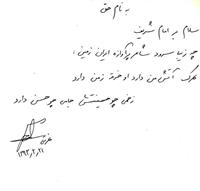 به نام حق
سلام بر امام شریف
چه زیبا سرود شاعر پرآوازه ایران زمین :
هرکه آتش من دارد او خرقه ز من دارد
زخمی چو حسینستش جامی چو حسن دارد
۱۳۹۲,۲,۲۱